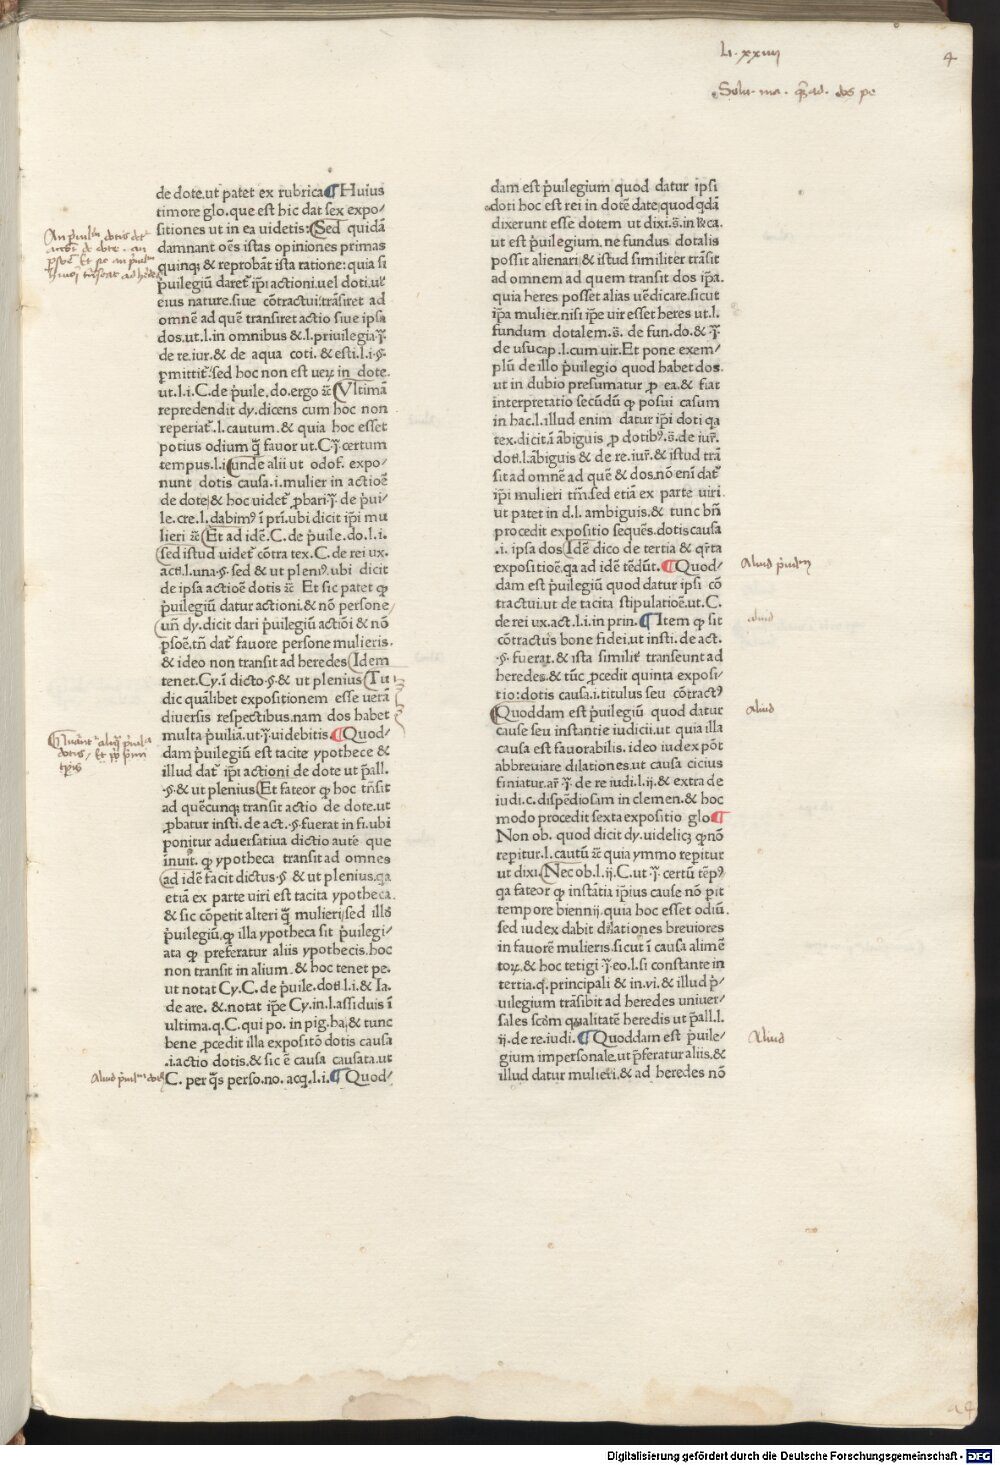 Li. xxiiij
4
Solu. ma. q̄ȝad. dos pe
de dote.ut patet ex rubrica¶Huius
timore glo.que est hic dat sex expo/
sitiones ut in ea uidetis:(Sed quidā
damnant oēs istas opiniones primas
quinq; & reprobāt ista ratione:quia si
p̍uilegiū daret̃ ip̄i actioni.uel doti.ut
eius nature.siue cōtractui:trāsiret ad
omnē ad quē transiret actio siue ipsa
dos.ut.l.in omnibus &.l.priuilegia.ȷ̄.
de re.iur.& de aqua coti.& esti.l.i.§.
ꝑmittit̃:sed hoc non est ueꝝ in dote.
ut.l.i.C.de p̍uile.do.ergo ⁊c̄(Vltimā
repredendit dy.dicens cum hoc non
reperiat̃.l.cautum.& quia hoc esset
potius odium q̄ȝ fauor ut.C.ȷ̄.certum
tempus.l.i(unde alii ut odof. expo/
nunt dotis causa.i.mulier in actioē
de dote & hoc uidet̃ ꝓbari.ȷ̄.de p̍ui/
le.cre.l.dabimꝰ ī pri.ubi dicit ip̄i mu
lieri ⁊c̄(Et ad idē.C.de p̍uile.do.l.i.
(sed istud uidet̃ cōtra tex.C.de rei ux.
act.l.una.§.sed & ut pleniꝰ.ubi dicit
de ipsa actioē dotis ⁊c̄ Et sic patet ꝙ
p̍uilegiū datur actioni.& nō persone/
(un̄ dy.dicit dari p̍uilegiū actiōi & nō
ꝑsoē.tn̄ dat̃ fauore persone mulieris.
& ideo non transit ad heredes(Idem
tenet.Cy.ī dicto.§.& ut plenius(Tu
dic quālibet expositionem esse uerā
diuersis respectibus.nam dos habet
multa p̍uilia.ut.ȷ̄.uidebitis.¶Quod/
dam p̍uilegiū est tacite ypothece &
illud dat̃ ip̄i actioni de dote ut p̄all.
.§.& ut plenius(Et fateor ꝙ hoc trn̄sit
ad quēcunq; transit actio de dote.ut
ꝓbatur insti.de act.§.fuerat in fi.ubi
ponitur aduersatiua dictio autē que
īnuit̃.ꝙ ypotheca transit ad omnes
(ad idē facit dictus.§.& ut plenius.qa
etiā ex parte uiri est tacita ypotheca.
& sic cōpetit alteri q̄ȝ mulieri:sed illḋ
p̍uilegiū.ꝙ illa ypotheca sit p̍uilegi/
ata ꝙ preferatur aliis ypothecis.hoc
non transit in alium.& hoc tenet pe.
ut notat Cy.C.de p̍uile.dot.l.i.& Ia.
de are.&.notat ip̄e Cy.in.l.assiduis ī
ultima.q.C.qui po.in pig.ha.& tunc
bene ꝓcedit illa expositō dotis causa
.i.actio dotis.& sic ē causa causata.ut
C.per q̄s perso.no.acq.l.i.¶Quod/
dam est p̍uilegium quod datur ipsi
doti hoc est rei in dotē date:quod qdā
dixerunt esse dotem ut dixi.s̄.in ꝶ.ca.
ut est p̍uilegium.ne fundus dotalis
possit alienari:& istud similiter trāsit
ad omnem ad quem transit dos ip̄a.
quia heres posset alias uēdicare.sicut
ip̄a mulier.nisi ip̄e uir esset heres ut.l.
fundum dotalem.s̄. de fun.do.& .ȷ̄.
de usucap.l.cum uir.Et pone exem/
plū de illo p̍uilegio quod habet dos.
ut in dubio presumatur ꝓ ea.& fiat
interpretatio secūdū ꝙ posui casum
in hac.l.illud enim datur ip̄i doti qa
tex.dicit.ī ābiguis ꝓ dotibꝰ.s̄.de iur̃.
dot.l.ābiguis & de re.iur̃.& istud trā
sit ad omnē ad quē & dos.nō enī dat̃
ip̄i mulieri tm̄.sed etiā ex parte uiri
ut patet in d.l. ambiguis.& tunc bn̄
procedit expositio sequēs.dotis causa
.i. ipsa dos(Idē dico de tertia & qrta
expositioē.qa ad idē tēdūt.¶Quod/
dam est p̍uilegiū quod datur ipsi cō
tractui.ut de tacita stipulatioē.ut.C.
de rei ux.act.l.i.in prin.¶Item ꝙ sit
cōtractus bone fidei.ut insti.de act.
.§.fuerat.& ista similit̃ transeunt ad
heredes.& tūc ꝓcedit quinta exposi/
tio:dotis causa.i.titulus seu cōtractꝰ
(Quoddam est p̍uilegiū quod datur
cause seu instantie iudicii.ut quia illa
causa est fauorabilis. ideo iudex pōt
abbreuiare dilationes.ut causa cicius
finiatur.ar̃.ȷ̄.de re iudi.l.ij.& extra de
iudi.c.dispēdiosam in clemen.& hoc
modo procedit sexta expositio glo.¶
Non ob. quod dicit dy.uidelicȝ ꝙnō
repitur.l.cautū ⁊c̄ quia ymmo repitur
ut dixi.(Nec ob.l.ij.C.ut .ȷ̄.certū tēpꝰ
qa fateor ꝙ instātia ip̄ius cause nō ꝑit
tempore biennij.quia hoc esset odiū.
sed iudex dabit dilationes breuiores
in fauorē mulieris.sicut ī causa alimē
toꝝ.& hoc tetigi .ȷ̄.eo.l.si constante in
tertia.q.principali & in.vi.& illud p̍/
uilegium trāsibit ad heredes uniuer/
sales scd̄m qualitatē heredis ut p̄all.l.
ij.de re.iudi.¶Quoddam est p̍uile/
gium impersonale.ut p̄feratur aliis.&
illud datur mulieri.& ad heredes nō
Aliud p̍uileᵐ
aliud
Aliud
Aliud
Aliud p̍uileᵐ dotis
Digitalisierung gefördert durch die Deutsche Forschungsgemeinschaft - DFG